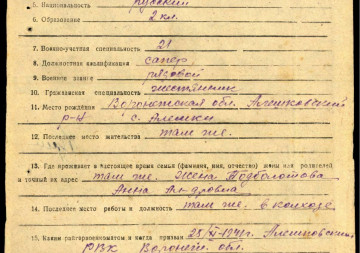 5. Национальность русский
6. Образование 2 кл.
7. Военно-учетная специальность 21
8. Должностная квалификация сапер
9. Военное звание рядовой
10. Гражданская специальность жестянник
11. Место рождения Воронежская обл. Алешковский
р-н с. Алешки
12. Последнее место жительства там же.
13. Где проживают в настоящее время семья (фамилия, имя, отчество) жены или родителей
и точный их адрес там же. Жена Подболотова
Анна Ал-дровна
14. Последнее место работы и должность там же. в колхозе
15. Каким райгорвоенкоматом и когда призван 28/VI-1941г. Алешковским
РВК Воронеж. обл.